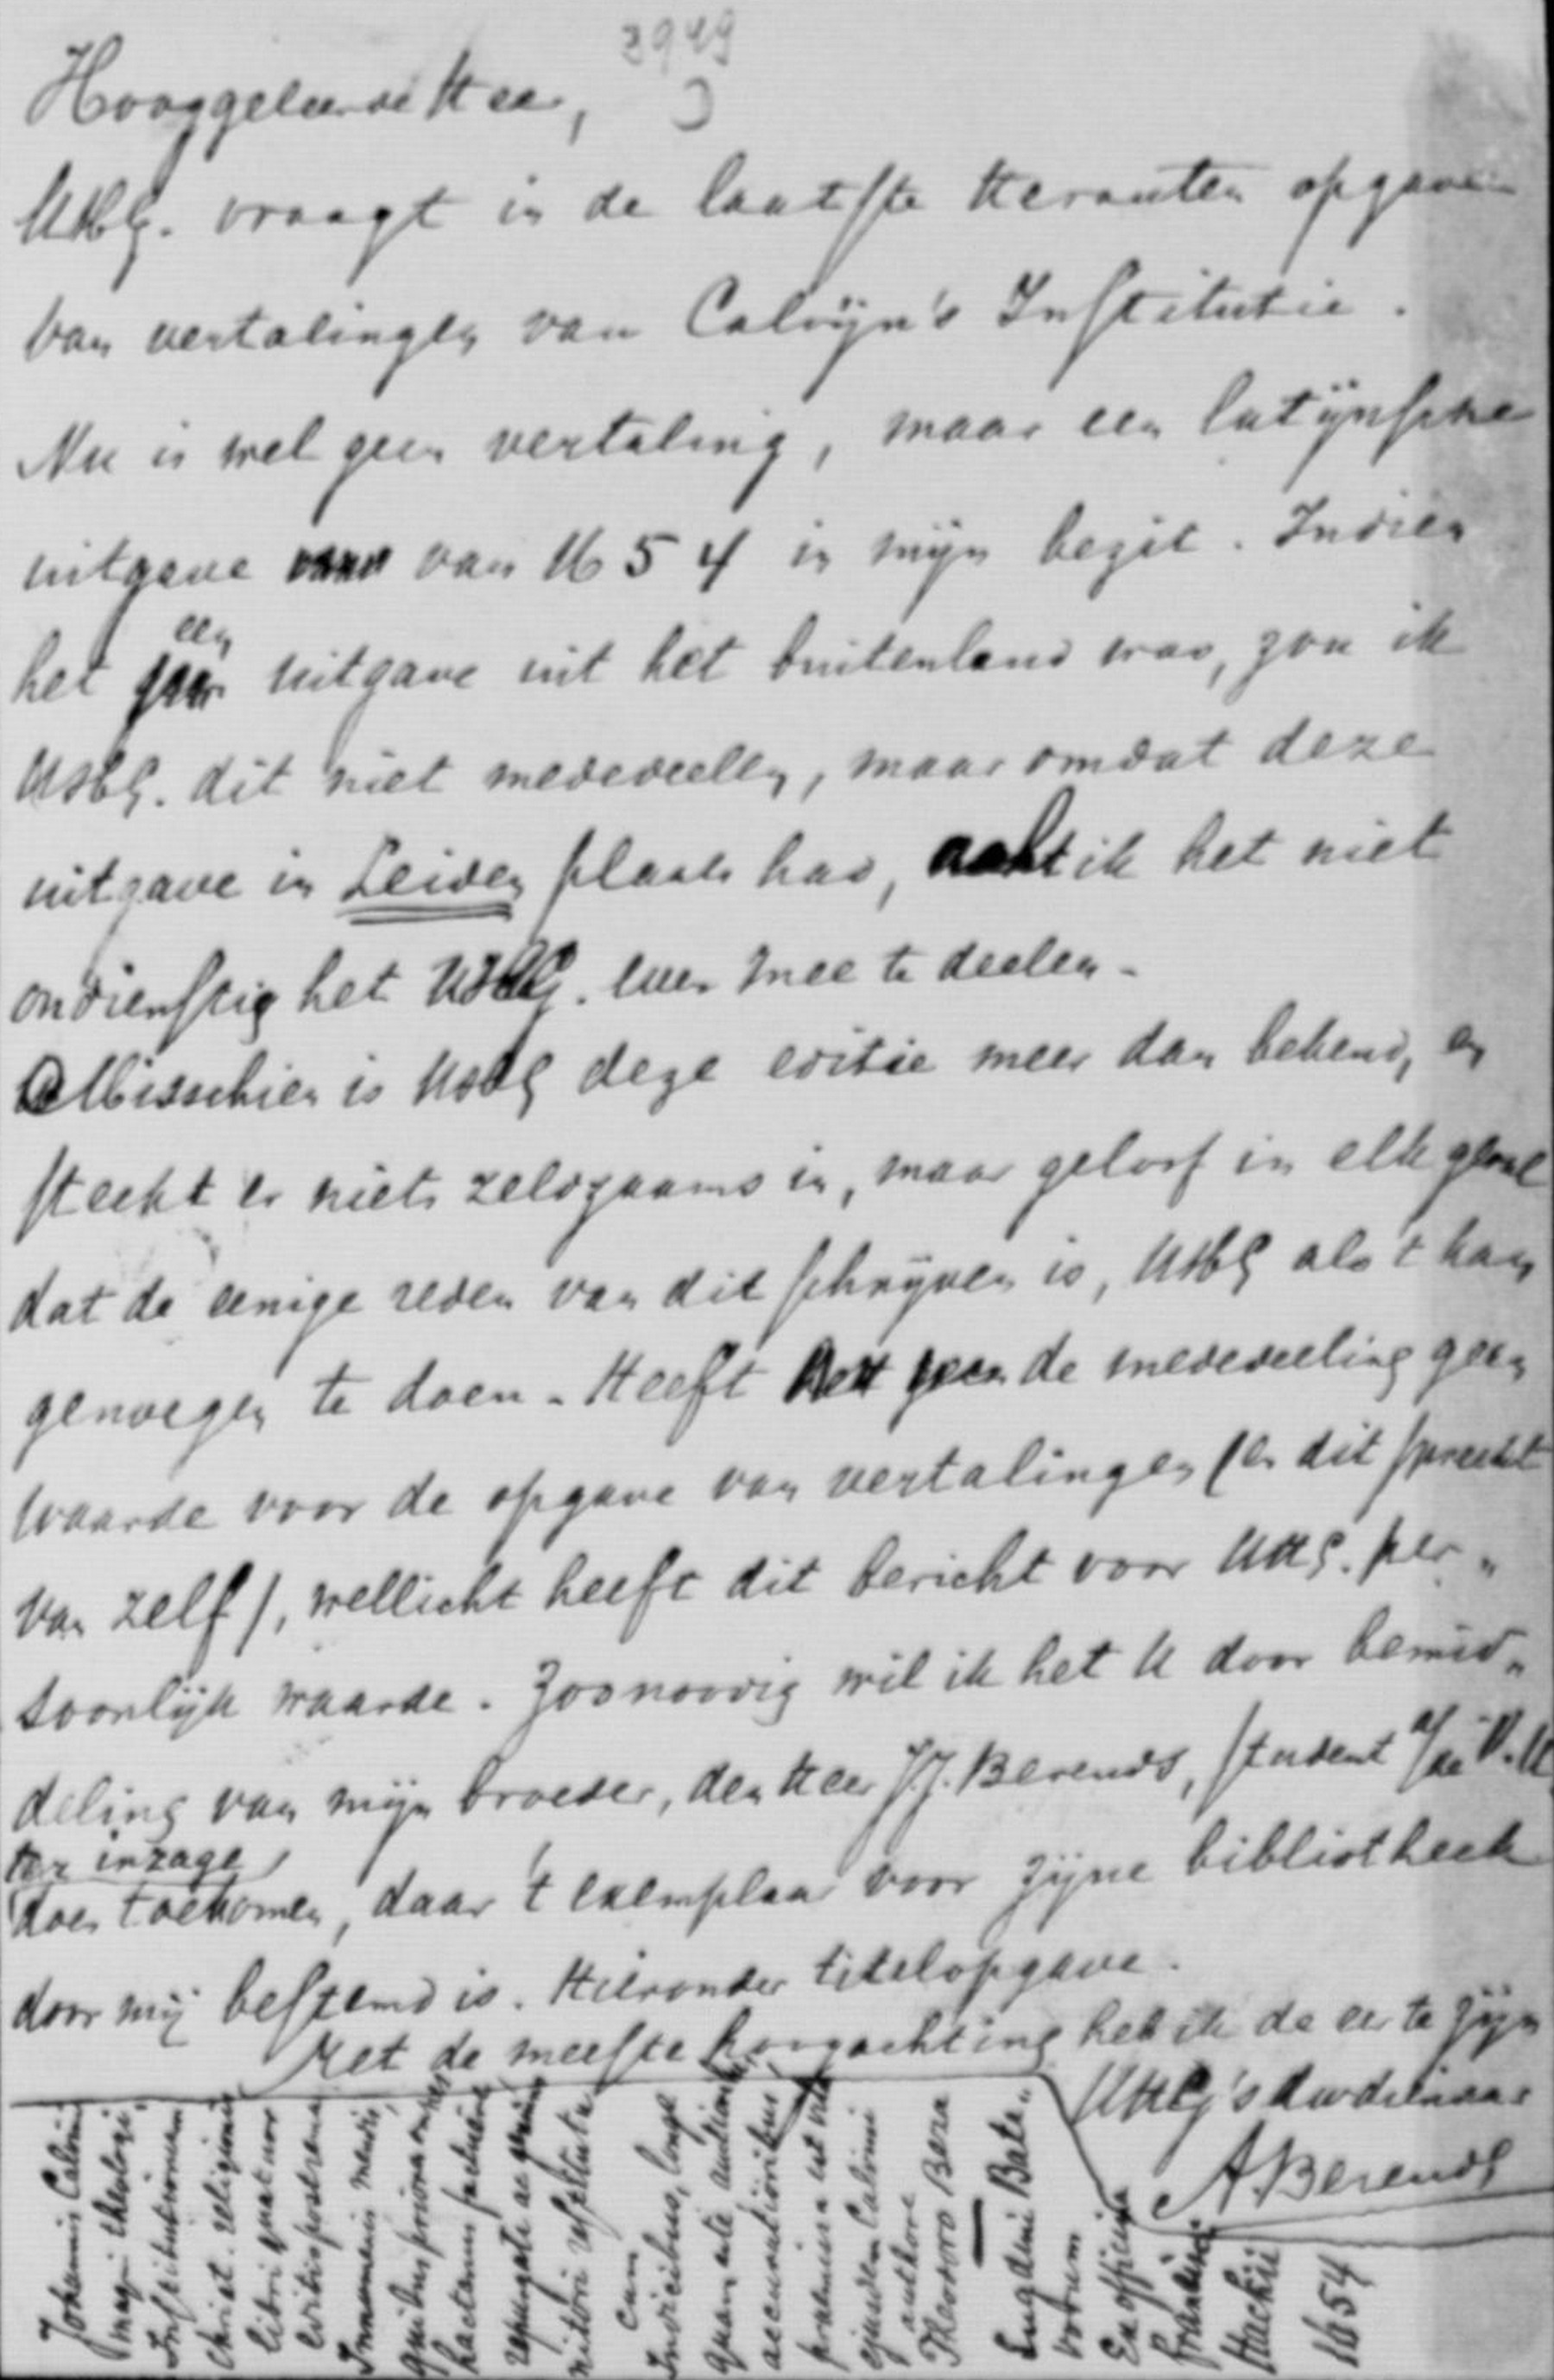 3949
Hooggeleerde Heer,
UHG. vraagt in de laatste Herauten opgave
van vertalingen van Calvijn's Institutie.
Nu is wel geen vertaling, maar een latijnsche
uitgave van 1654 in mijn bezit. Indien
het een uitgave uit het buitenland was, zou ik
UHG. dit niet mededeelen, maar omdat deze
uitgave in Leiden plaats had, acht ik het niet
ondienstig het UHG. even mee te deelen.
Misschien is UHG deze editie meer dan bekend, en
steekt er niets zeldzaams in, maar geloof in elk geval
dat de eenige reden van dit schrijven is, UHG als 't kan
genoegen te doen. Heeft de mededeeling geen
waarde voor de opgave van vertalingen (en dit spreekt
van zelf), wellicht heeft dit bericht voor UHG. per„
soonlijk waarde. Zoonoodig wil ik het U door bemid„
deling van mijn broeder, den Heer J.J. Berends, student a/de V.U
ter inzage
doen toekomen, daar 't exemplaar voor zijne bibliotheek
door mij bestemd is. Hieronder titelopgave.
Met de meeste hoogachting heb ik de eer te zijn
UHG's dw dienaar
A. Berends
Johannis Calvini
magni theologi,
Institutionum
Christ. religionis
libri quatuor
editio postrema
Innumeris mendis,
quibus priores
hactenus
repurgata ac
nitori restituta
cum
Indicibus, longe
quam ante auctioribus
accuratioribus,
praemissa est vita
ejusdem Calvini
authore
Theodoro Beza
—
Lugduni Bata„
vorum
Ex officina
Francisci
Hackii
1654